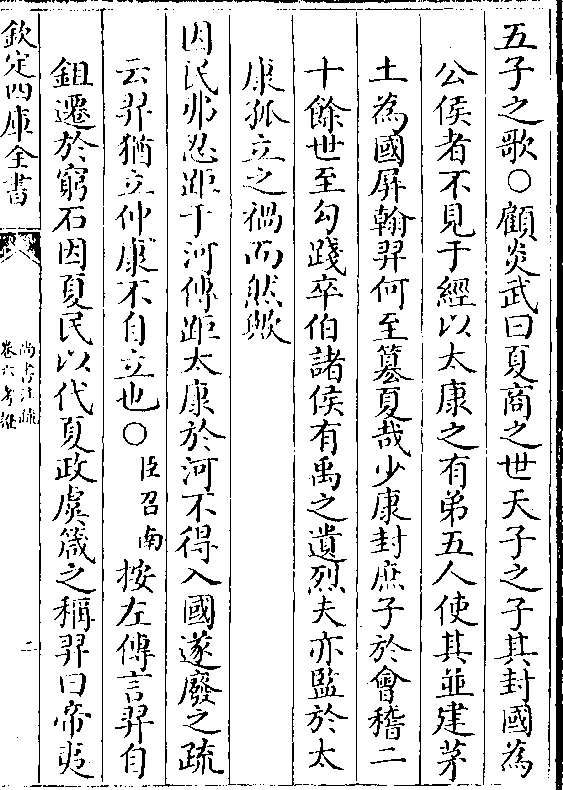 五子之歌○顧炎武曰夏商之世天子之子其封國為
公侯者不見于經以太康之有弟五人使其並建茅
土為國屏翰羿何至篡夏哉少康封庶子於會稽二
十餘世至勾踐卒伯諸侯有禹之遺烈夫亦監於太
康孤立之禍而然歟
因民弗忍距于河傳距太康於河不得入國遂廢之疏
云羿猶立仲康不自立也○臣召南按左傳言羿自
鉏遷於窮石因夏民以代夏政虞箴之稱羿曰帝夷
欽定四庫全書
尚書注疏
卷六考證
二